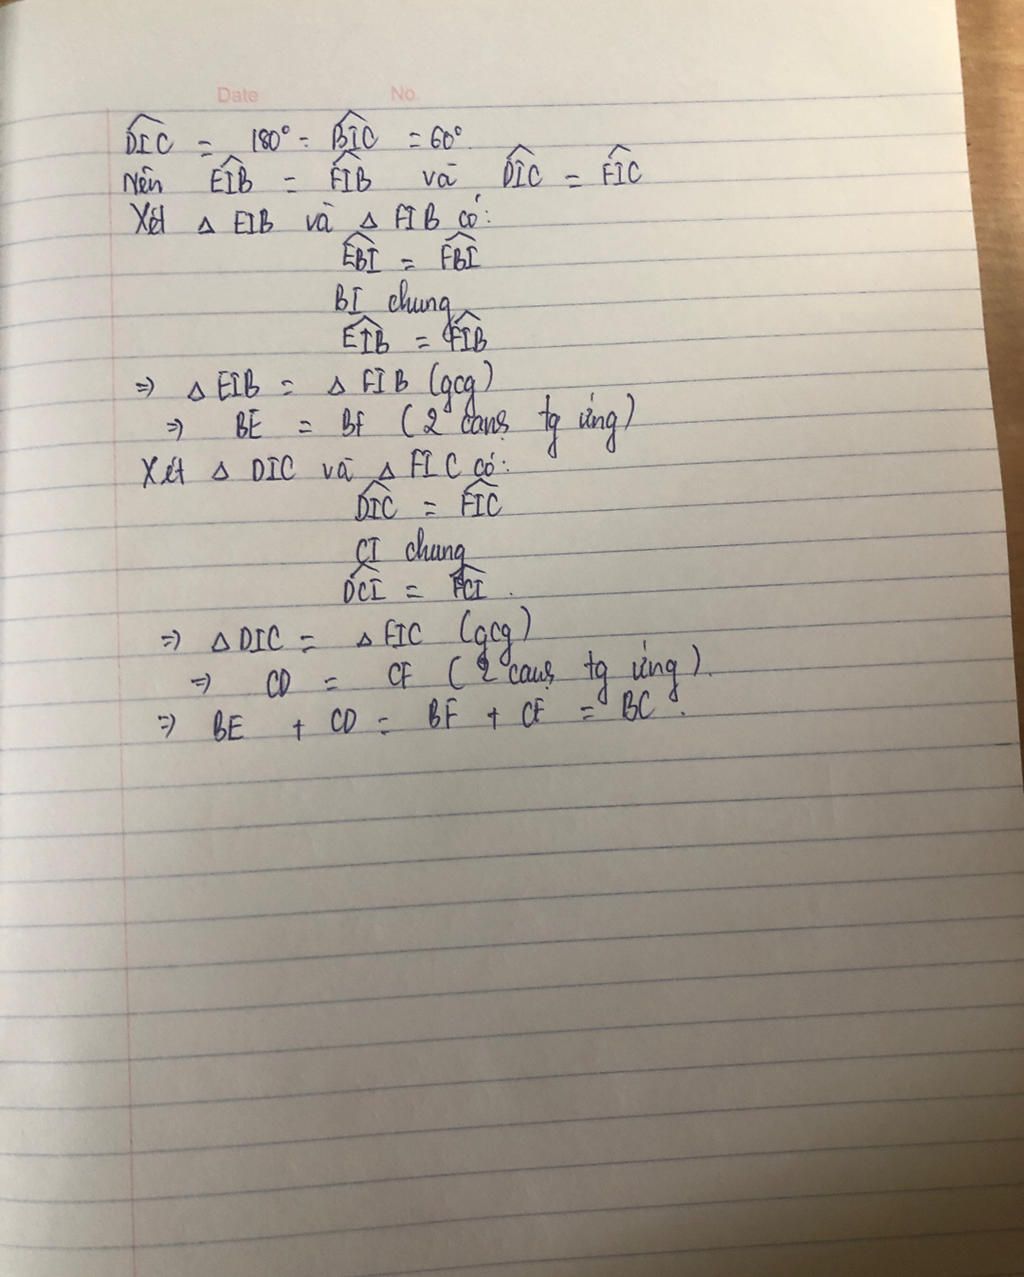 Date No.
DIC = 180° - BIC = 60°
Nên EIB = FIB và DIC = FIC
Xét △ EIB và △ FIB có:
EBI = FBI
BI chung
EIB = FIB
⇒ △ EIB = △ FIB (gcg)
⇒ BE = BF (2 cạnh tg ứng)
Xét △ DIC và △ FIC có:
DIC = FIC
CI chung
DCI = FCI.
⇒ △ DIC = △ FIC (gcg)
⇒ CD = CF (2 cạnh tg ứng).
⇒ BE + CD = BF + CF = BC.